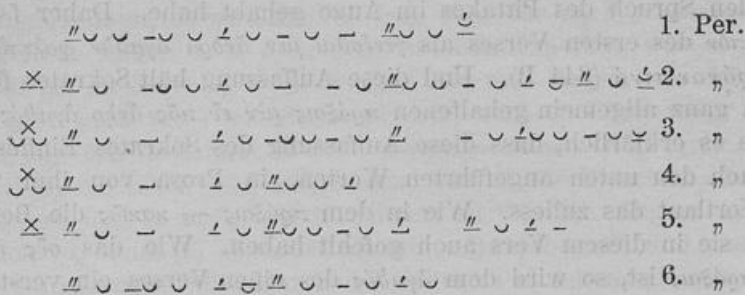 –́́ ⏑ ⏑ – ⏑ ⏑ –́ ⏑ – ⏑ – –́́ ⏑ ⏑ ⏑́ 1. Per.
× –́́ ⏑ ⏑ – ⏑ ⏑ –́ ⏑ – –́́ ⏑ ⏑ – ⏑ –́ ⏑ –́́ ⏑ ⏑́ 2. „
× –́́ ⏑ – –́ ⏑ – ⏑ ⏑ – ⏑ –́́ ⏑ – ⏑ –́ ⏑ ⏑ – ⏑ ⏑ 3. „
× –́́ ⏑ – –́ ⏑ –́́ ⏑ ⏑ –́ 4. „
× –́́ ⏑ – –́ ⏑ –́́ ⏑ ⏑ – ⏑ –́ –́́ ⏑ –́ – 5. „
–́́ ⏑ – ⏑ ⏑ –́ ⏑ –́́ ⏑ ⏑ – ⏑ –́ ⏑ 6. „